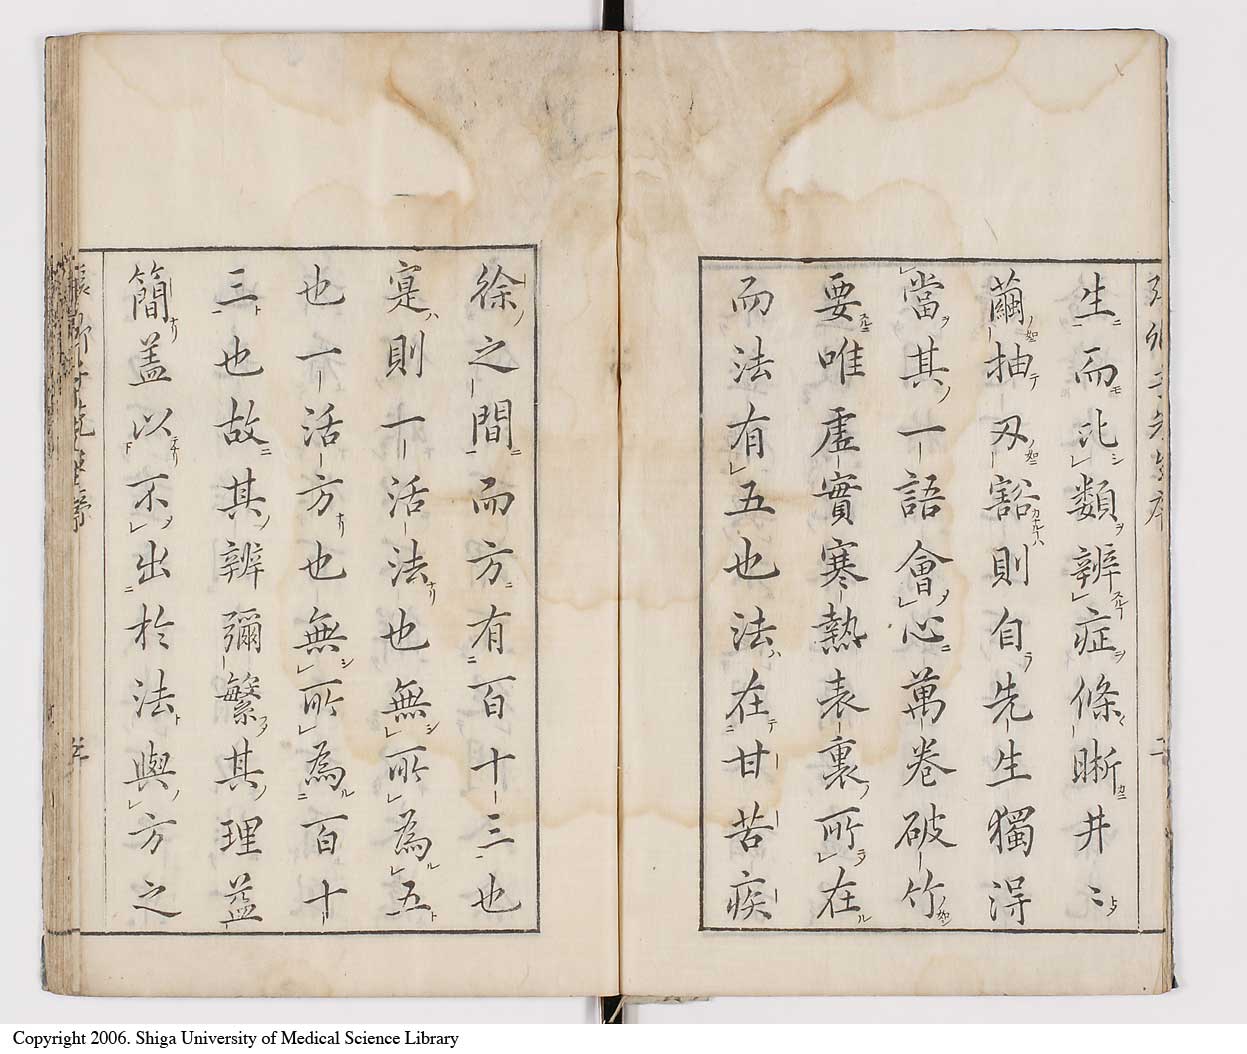 生而比類辨症條晰井〻
繭抽刃豁則自先生獨得
當其一語會心萬卷破竹
要唯虛實寒熱表裏所在
而法有五也法在甘苦疾
徐之間而方有百十三也
寔則一活法也無所為五
也一活方也無所為百十
三也故其辨彌繁其理益
簡盖以不出於法與方之
Copyright 2006. Shiga University of Medical Science Library